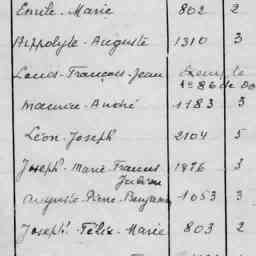 Emile-Marie 802 2
Hippolyte-Auguste 1310 3
Louis-François-Jean Exempté
1886 de Do
Maurice-André 1183 3
Léon-Joseph 2104 5
Joseph-Marie-Francis 1876 3
Julien
Auguste-Pierre-Benjamin 1053 3
Joseph-Félix-Marie 803 2